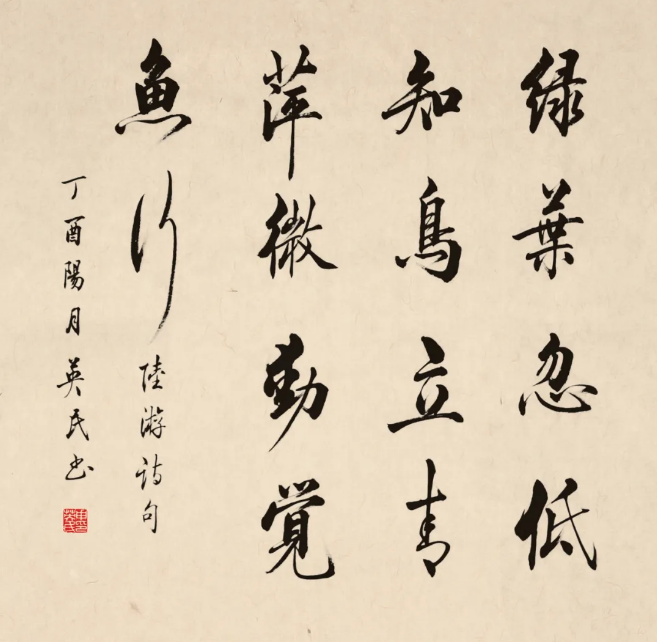 绿葉忽低
知鳥立青
萍微動覚
魚行
陸游詩句
丁酉陽月英民书